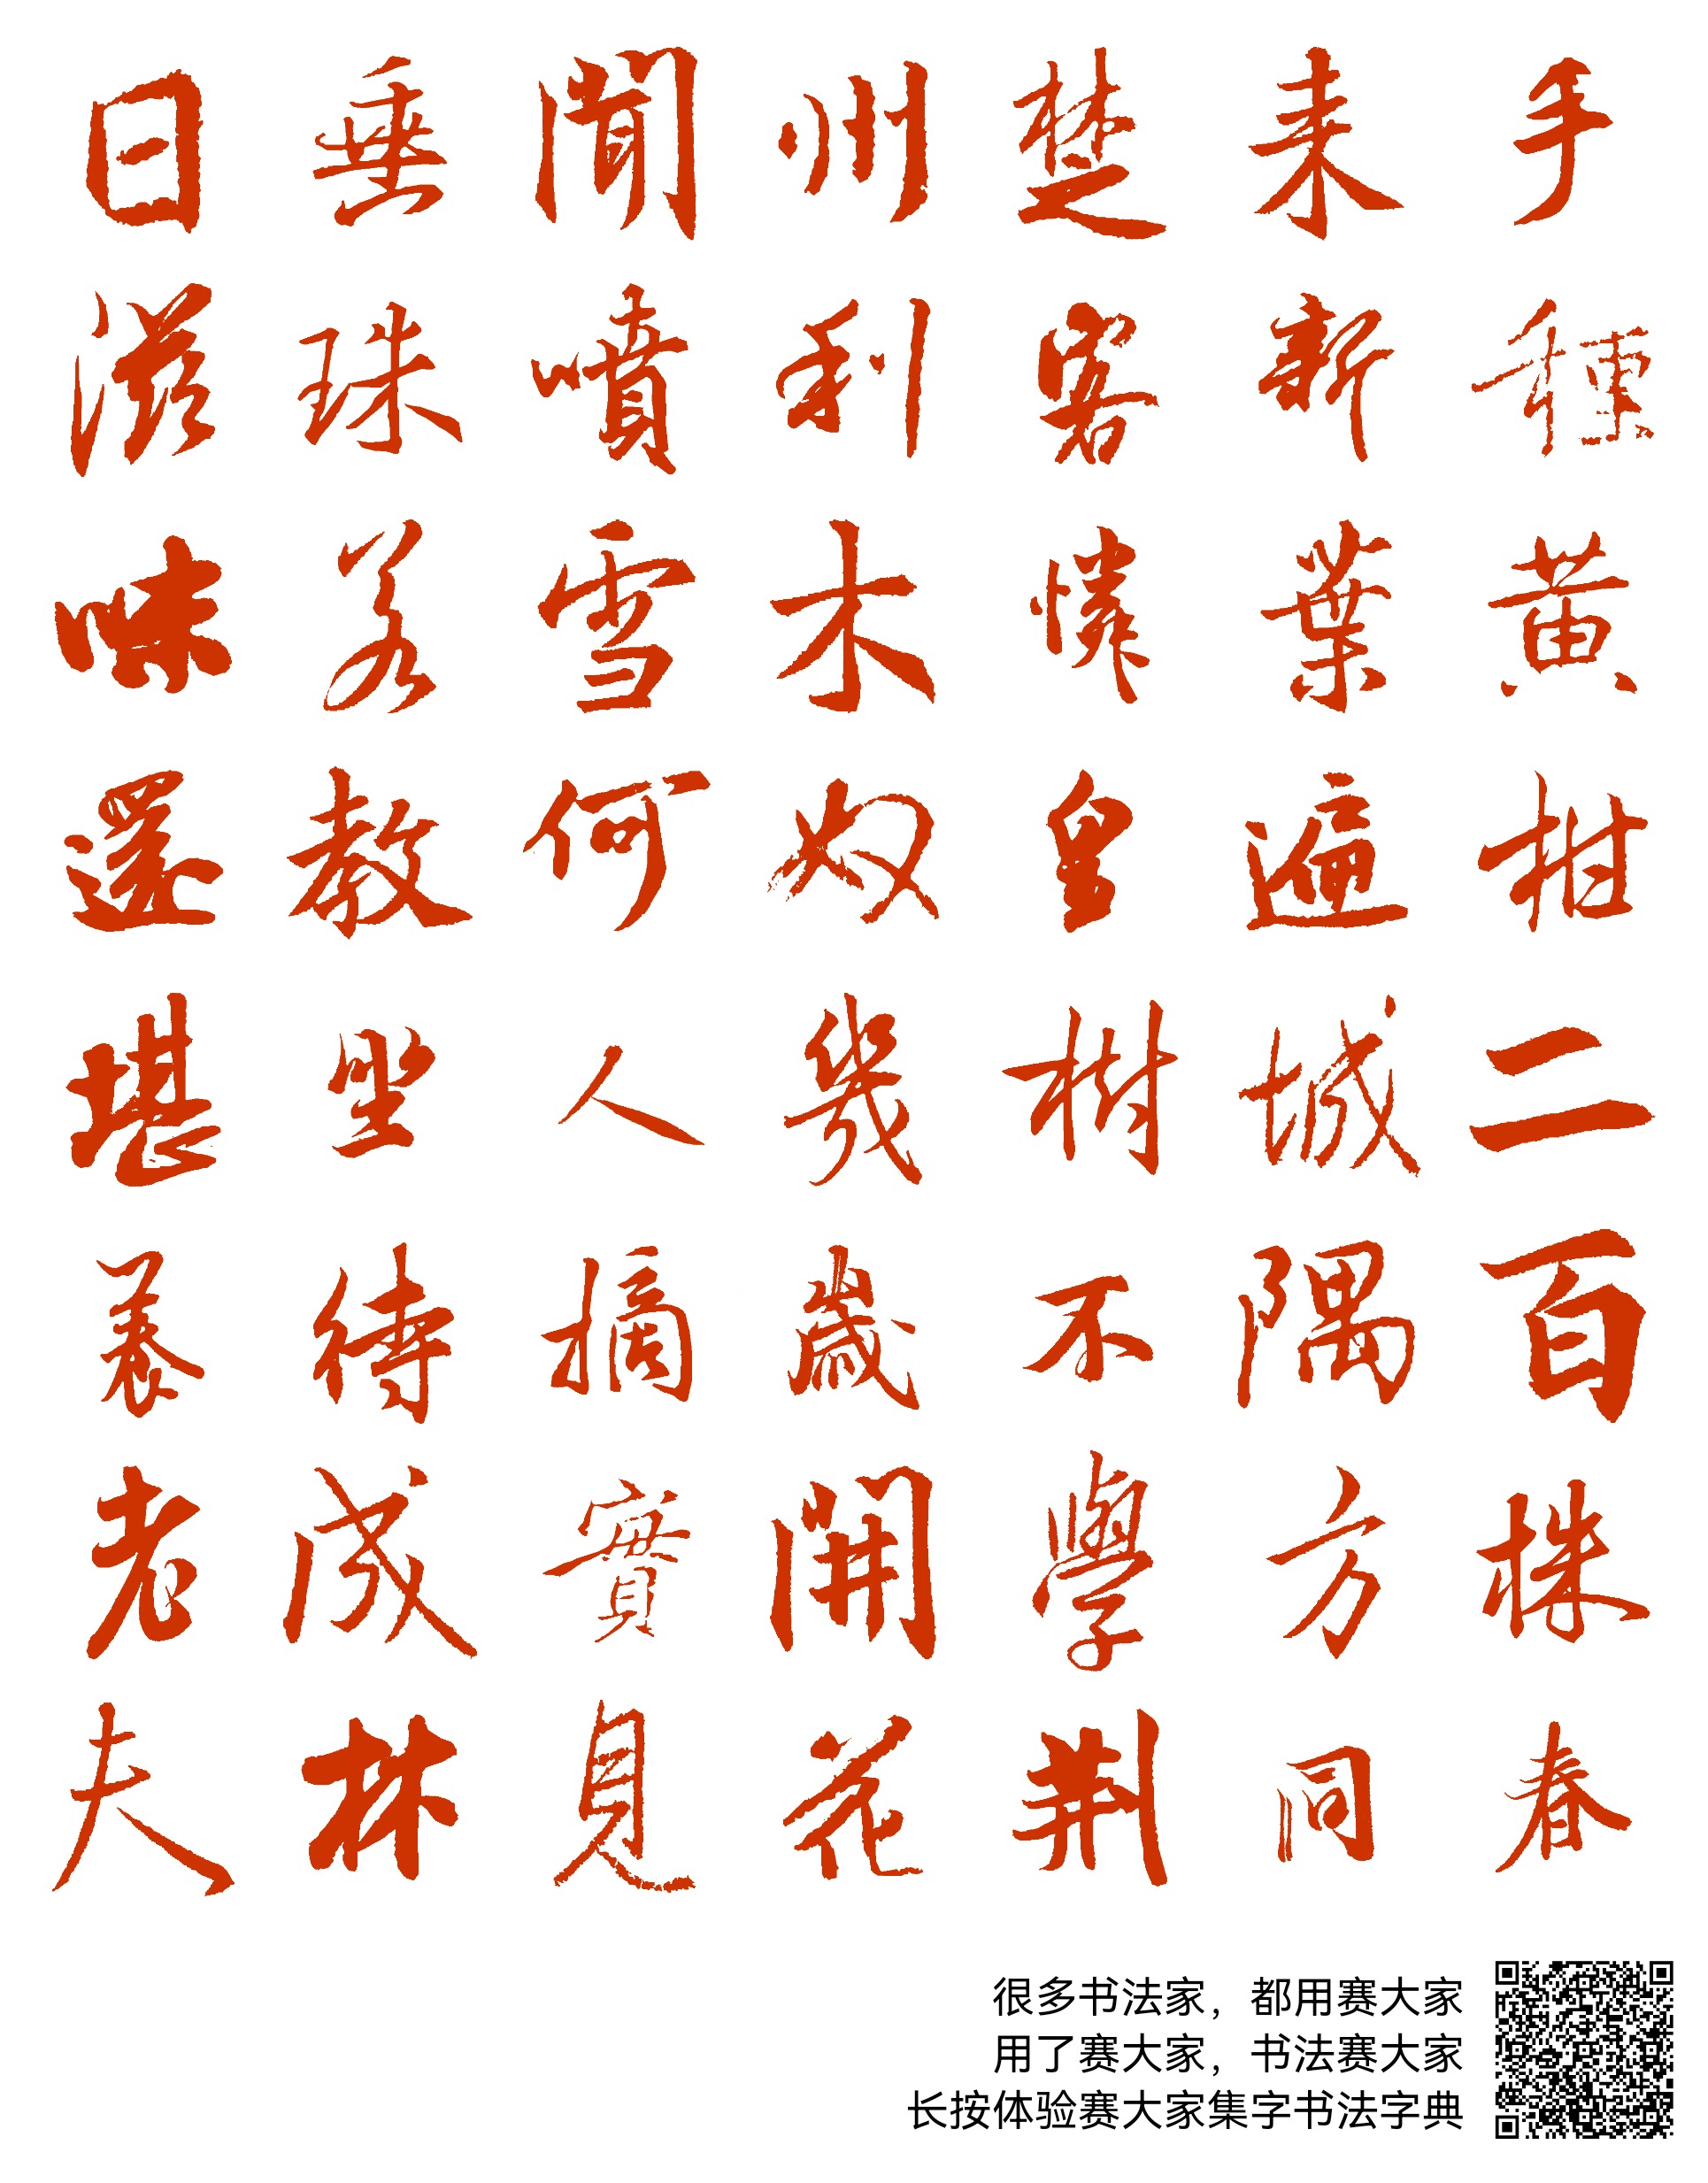 手種黄柑二百株春
来新葉遍城隅方同
楚客憐皇樹不學荆
州利木奴幾歲開花
聞噴雪何人摘實見
垂珠若教坐待成林
日滋味還堪養老夫
很多书法家，都用赛大家
用了赛大家，书法赛大家
长按体验赛大家集字书法字典